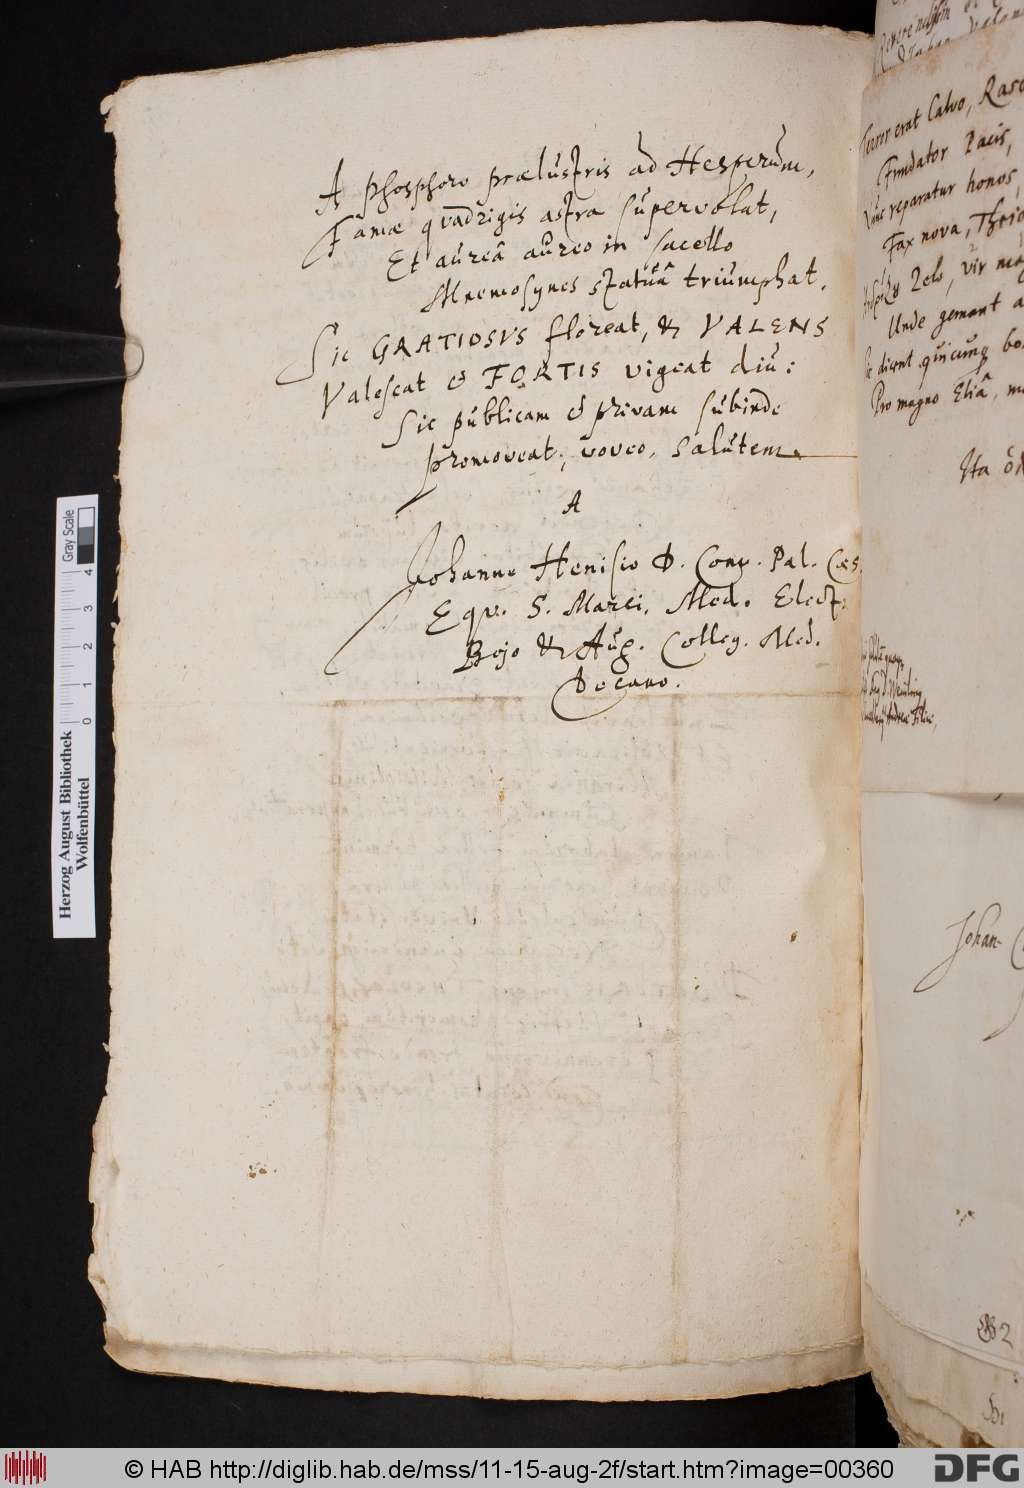 A Phosphoro prælustris ad Hesperum,
Famæ quadrigis astra supervolat,
Et aureâ aureo in sacello
Mnemosynes statuâ triumphat.
Sic GRATIOSUS floreat, & VALENS
Valescat & FORTIS vigeat diu:
Sic publicam & privam subinde
promoveat, voveo, salutem.
A
Johanne Henisio D. Com. Pal. Cæs.
Equ. S. Marci. Med. Elect.
Bojo & Aug. Colleg. Med.
Decano.
Terror erat Calvo,
Fundator Pacis,
Nunc reparatur honos,
Fax nova,
Zelo, vir
Unde gemant
dicent quicunq
Pro magno Eliâ,
Ita
Johan-
Herzog August Bibliothek
Wolfenbüttel
0 1 2 3 4
Gray Scale
© HAB http://diglib.hab.de/mss/11-15-aug-2f/start.htm?image=00360
DFG